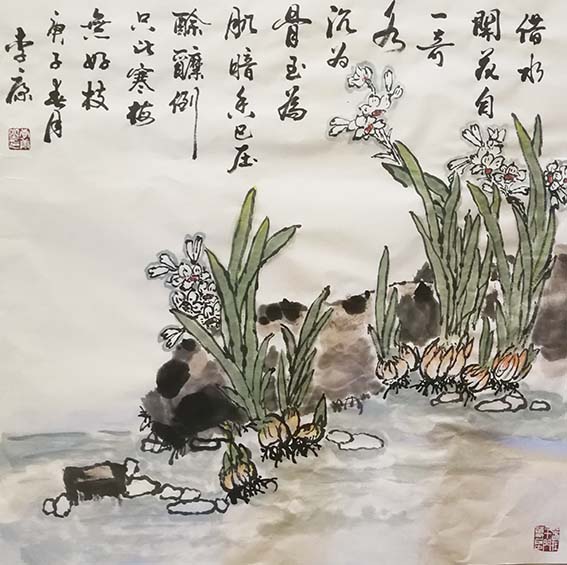 借水
開花自
一奇
水
沉为
骨玉為
肌暗香已压
酴醿倒
只比寒梅
無好枝
庚子春月
李